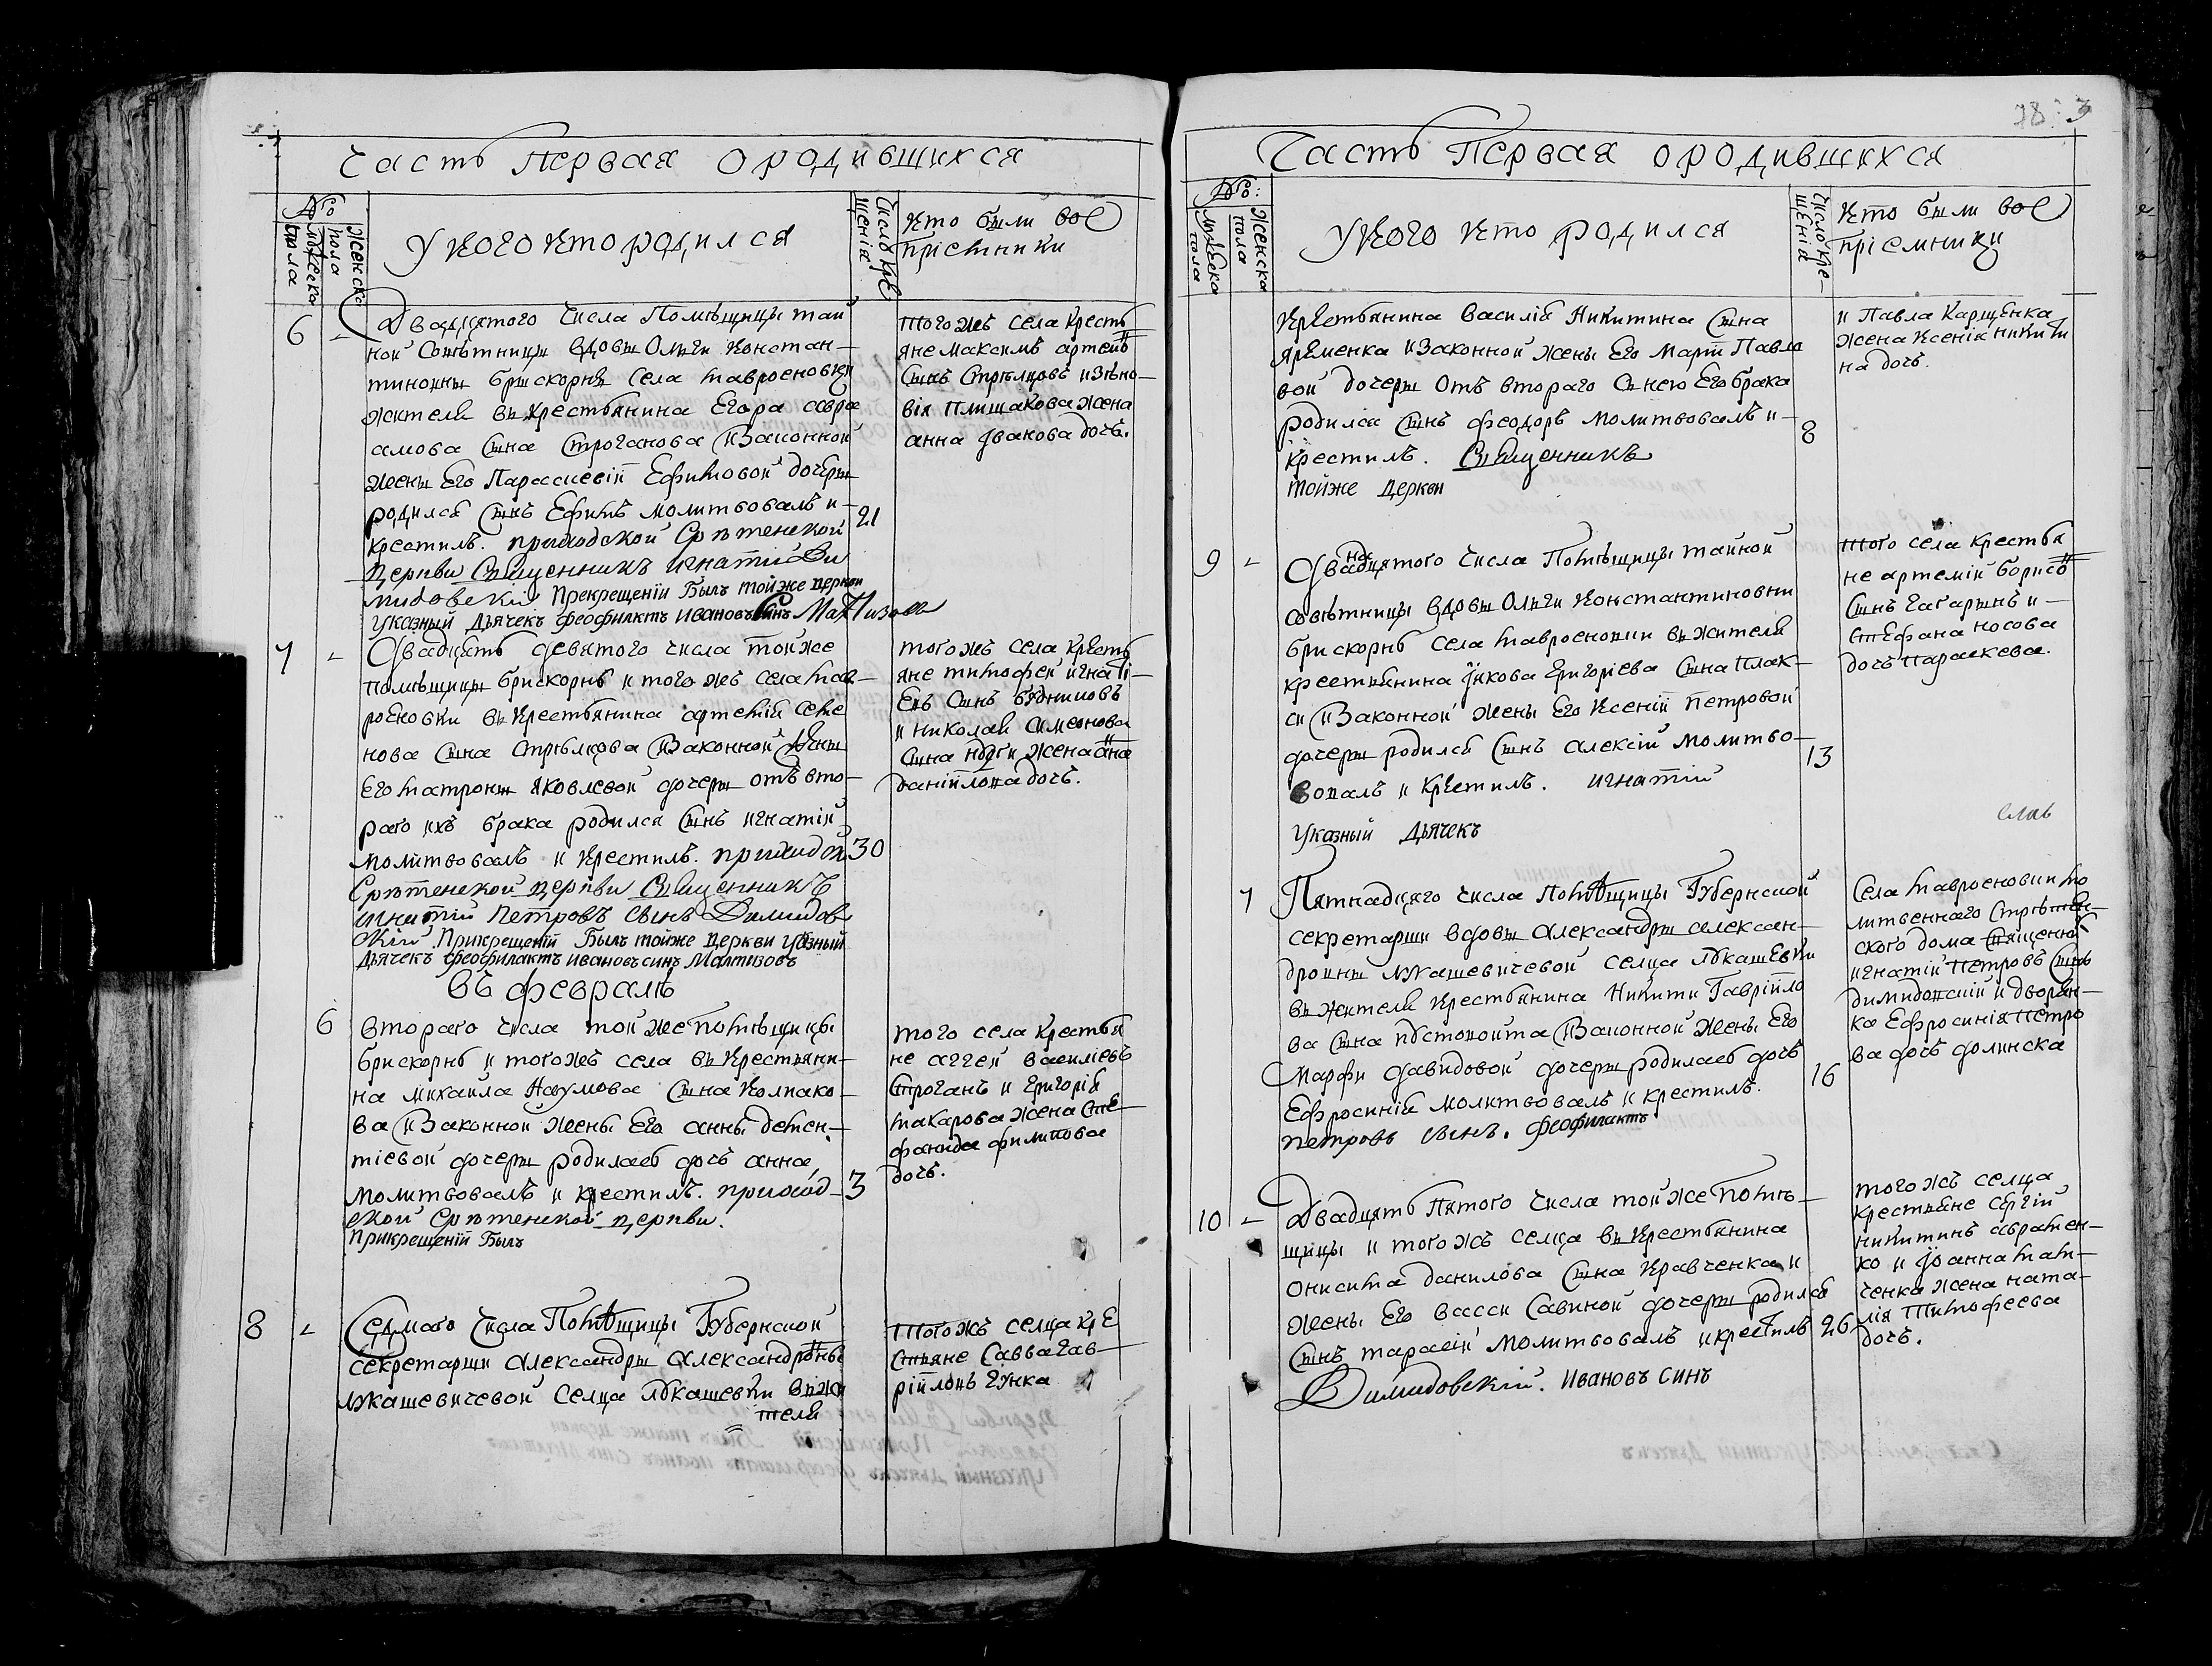 Часть Первая о родившихся
№
мужеска пола
женска пола
У кого кто родился
Число крещенїя
Кто были вос
прїемники
6 -
Двадцятого числа Помѣщицы тай
ной Совѣтницы вдовы Ольги Констан-
тиновны Брискорнъ села Мавроеновки
жителя Крестьянина Егора авра
амова сына Строганова и Законной
жены Его Парасцевїи Ефимовой дочеры
родился сынъ Ефимъ молитвовалъ и-
крестилъ. приходской Срѣтенской
Церкви Священникъ Игнатїй Ди
мидовскїй Прекрещенїи Былъ тойже церкви
указный Дьячекъ феофилактъ Ивановъ синъ
21
тогожъ села Кресть
яне Максимъ артемо
сынъ Стрѣлцовъ и Зѣно-
вія Плишакова жена
анна Іванова дочь.
7 -
Двадцять девятого числа тойже
помѣщицы Брискорнъ и тогожъ села Мав-
роеновки Крестьянина артемїя семе
нова сына Стрѣлцова и Законной жены
Его Матроны Яковлевой дочеры отъ вто-
раго ихъ брака родился сынъ игнатїй
молитвовалъ и крестилъ. приходской
Срѣтенской церкви Священникъ
игнатїй Петровъ сынъ Димидов
скїй Прикрещенїи Былъ тойже Церкви указный
Дьячекъ феофилактъ ивановъ синъ
30
тогожъ села Кресть
яне тимофей игнатї-
евъ сынъ
и николая симеонова
сына жена анна
данїйлова дочь.
въ февралѣ
6
втораго числа тойже помѣщицы
Брискорнъ и тогожъ села Крестьяни-
на михаила Наумова сына Колпако-
ва и Законной жены Его анны демен-
тїевой дочеры родилась дочь анна
молитвовалъ и крестилъ. приход-
ской Срѣтенской церкви.
Прикрещенїи Былъ
3
того села крестья
не аггей василїевъ
Строганъ и Григорїя
макарова жена Сте
фанида филипова
дочь.
8 -
Седмаго числа Помѣщицы Губернской
секретарши александры александровны
лукашевичевой селца Лукашевки вѣжи
теля
тогожъ селца кре
стьяне Савва гав-
рїиловъ гунка
78. 3
Часть Первая о родившихся
№:
мужеска пола
женска пола
У кого кто родился
Число крещенїя
Кто были вос
прїемники
Крестьянина василїя Никитина сына
яременка и Законной жены Его Марты Павло
вой дочеры отъ втораго с нею Его брака
родился сынъ феодоръ молитвовалъ и-
крестилъ. Священникъ
тойже Церкви
8
и Павла Карщенка
жена Ксенїя никити
на дочь.
9 -
Двадцятого числа Помѣщицы тайной
на
совѣтницы вдовы Ольги Константиновны
Брискорнъ села Мавроеновки вѣжителя
крестьянина Іякова Григорїева сына Плак-
си и Законной жены Его Ксенїи Петровой
дочеры родился сынъ алексїй молитво-
вовалъ и крестилъ. игнатїй
Указный Дьячекъ
13
того села крестья
не артемїй борисо
сынъ гагаринъ и-
Стефана носова
дочь параскева.
7
Пятнадцяго числа Помѣщицы Губернской
секретарши вдовы александры алексан-
дровны лукашевичевой селца Лукашевки
вѣжителя Крестьянина Никиты Гаврїило
ва сына и Законной жены Его
Марфы давидовой дочеры родилась дочь
Ефросинїя молитвовалъ и крестилъ.
петровъ сынъ. феофилактъ
16
Села Мавроеновки мо
литвеннаго Стрѣтен-
ского дома священникъ
игнатїй Петровъ сынъ
димидовскїй и дворян-
ка Ефросинїя Петро
ва дочь долинска
10 -
Двадцять Пятого числа тойже помѣ-
щицы и тогожъ селца Крестьянина
онисима данилова сына Кравченка и
жены Его васси Савиной дочеры родился
сынъ тарасїй молитвовалъ и крестилъ
Димидовскїй. Ивановъ синъ
26
тогожъ селца
крестьяне сергїй
никитинъ абрамен-
ко и Іоанна мам-
ченка жена ната-
лїя Тимофеева
дочь.